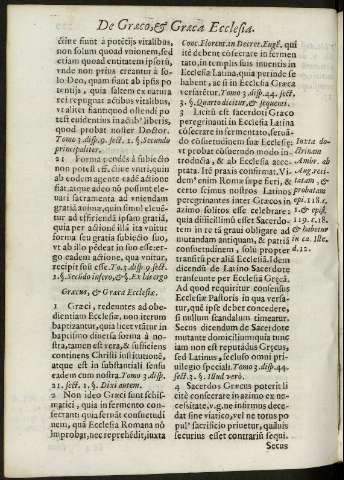 De Græco, & Græca Ecclesia.
ctione fiunt à potētijs vitalibus,
non solum quoad vnionem, sed
etiam quoad entitatem ipsorū,
vnde non prius creantur à so-
lo Deo, quam fiant ab ipsis po
tentijs, quia saltem ex natura
rei repugnat acibus vitalibus,
vt aliter fiant: quod ostendi po
test euidentius in acib' liberis,
quod probat noster Doctor.
Tomo 3. disp. 9. sect. 2. §. Secundo
principaliter.
21 Forma pendēs à subiecto
non potest esse, cùm vnitur, quin
ab eodem agente eadē actione
fiat, atque adeo nō possunt ele-
uari sacramenta ad vniendam
gratiā animæ, quin simul eleuē-
tur ad efficiendā ipsam gratiā,
quia per actione illā ita vnitur
forma seu gratia subiecto suo,
vt ab illo pēdeat in suo esse: er-
go eadem actione, qua vnitur,
recipit suū esse. To. 3. disp. 9. sect.
2. §. Secūdo infero, & §. Ex his ergo
Græcus, & Græca Ecclesia.
1 Græci, redeuntes ad obe-
dientiam Ecclesiæ, non iterum
baptizantur, quia licet vtātur in
baptismo diuersa forma à no-
stra, tamen est vera, & sufficiens
continens Christi institutionē,
atque est in substantiali sensu
eadem cum nostra. Tomo 3. disp.
21. sect. 1. §. Dixi autem.
2 Non ideo Græci sunt schis-
matici, quia in fermento con-
secrant: quia seruāt consuetudi
nem, quā Ecclesia Romana nō
improbat, nec reprehēdit, iuxta
Conc. Florent. in Decret. Eugē. qui
itē debent cōsecrare in fermen
tato, in templis suis inuentis in
Ecclesia Latina, quia perinde se
habent, ac si in Ecclesia Græca
versarētur. Tomo 3. disp. 44. sect.
3. §. Quarto dicitur, & sequenti.
3 Licitū est sacerdoti Græco
peregrinanti in Ecclesia Latina
cōsecrare in fermentato, seruā-
do consuetudinem suæ Ecclesiæ:
potest consuetudo modo in-
troducta, & ab Ecclesia acce-
ptata. Ita praxis confirmat. Vi-
dem' enim Romæ sæpe fieri, &
certo scimus nostros Latinos
peregrinantes inter Græcos in
azimo solitos esse celebrare:
quia difficilimū esset Sacerdo-
tem in re tā graui obligare ad
mutandam antiquam, & patriā
consuetudinem, solū propter
transitū per aliā Ecclesiā. Idem
dicendū de Latino Sacerdote
transeunte per Ecclesiā Grecā.
Ad quod requiritur consensus
Ecclesiæ Pastoris in qua versa-
tur, quē ipse debet concedere,
si nullum scandalum timeatur.
Secus dicendum de Sacerdote
mutante domicilium: quia tunc
iam non est reputādus Grecus,
sed Latinus, secluso omni pri-
uilegio speciali. Tomo 3. disp. 44.
sect. 3. §. Illud verò.
4 Sacerdos Grecus poterit li
citè consecrare in azimo ex ne-
cessitate, v.g. ne infirmus dece-
dat sine viatico, vel ne totus po
pul' sacrificio priuetur, quāuis
securius esset contrariū sequi.
Secus
Iuxta do
ctrinam
Ambr. ab
Aug. reci-
tatam, &
probatam
epi. 118. c.
2. & epist.
119. c. 18.
& habetur
in ca. Illa
d. 12.